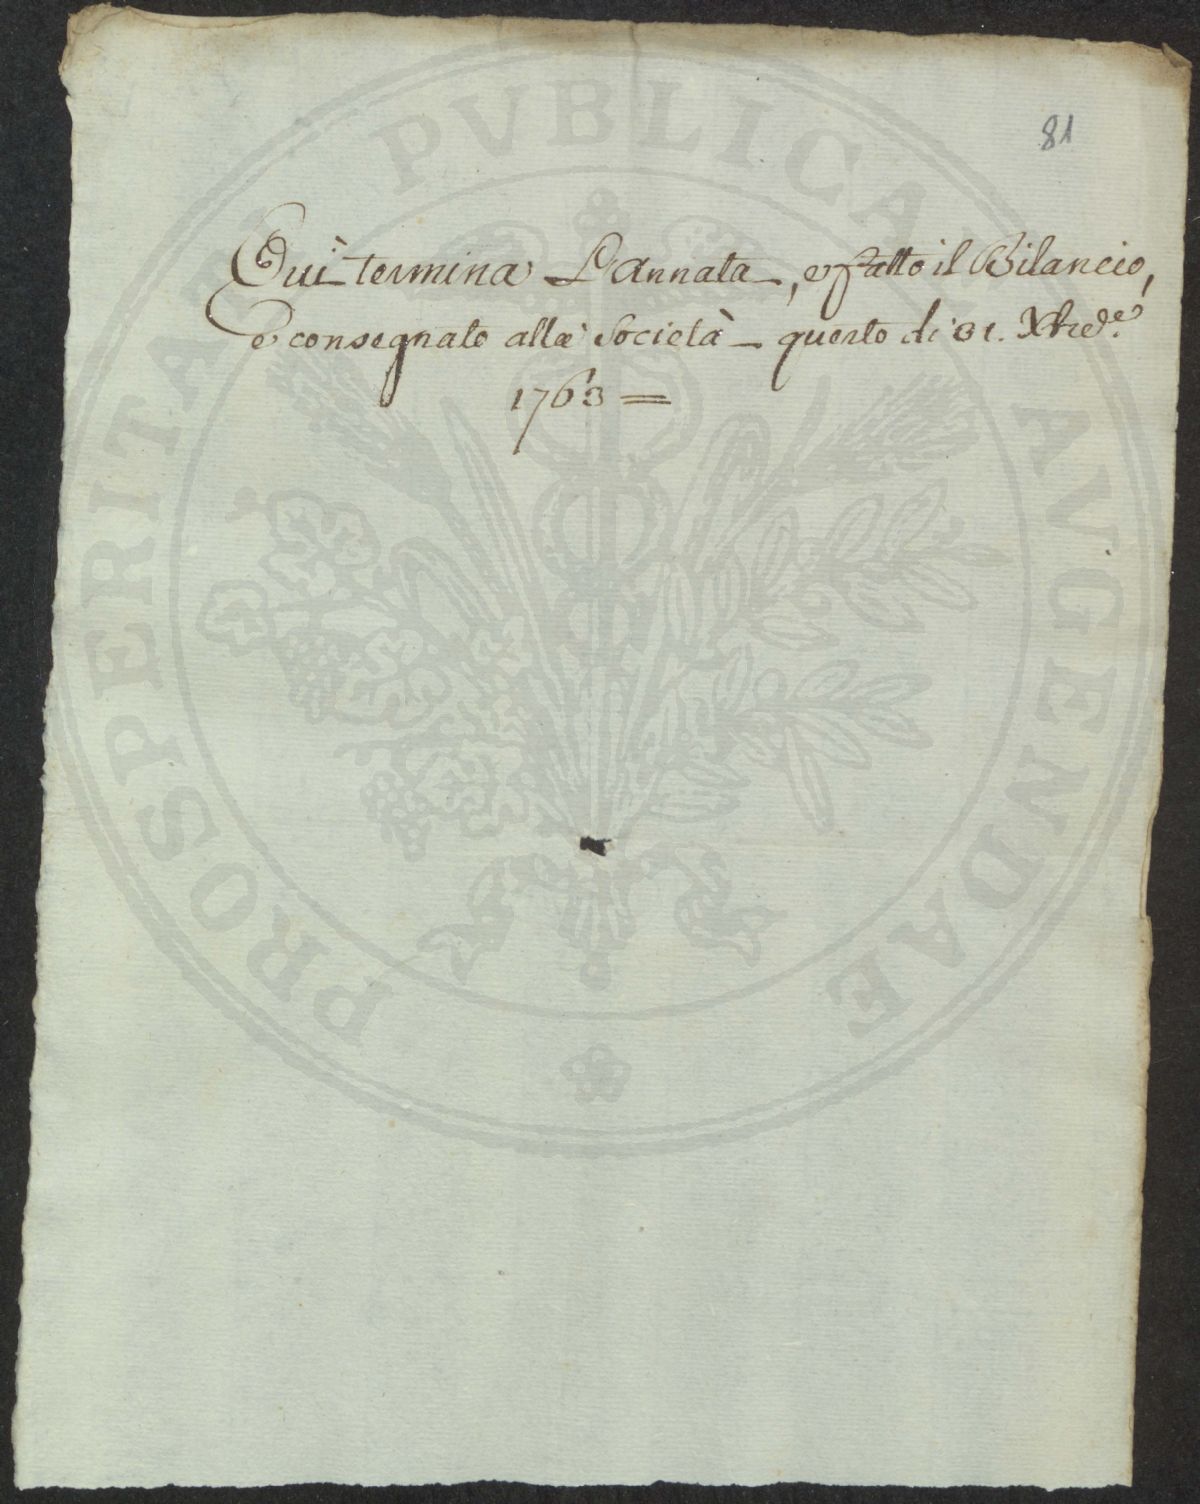 81
Quì termina L'Annata, e fatto il Bilancio,
e consegnato alla Società questo di 31. Xbre
1763 =
PROSPERITATI PVBLICAE AVGENDAE